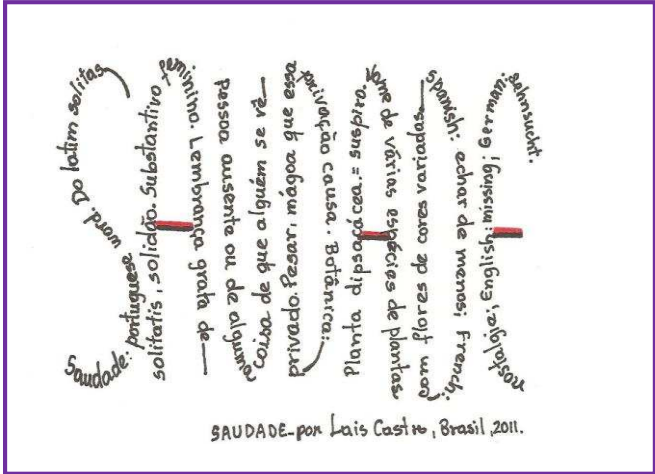 Saudade: portuguese word. Do latim solitas
solitatis, solidão. Substantivo feminino. Lembrança grata de
pessoa ausente ou de alguma coisa de que alguém se vê
privado. Pesar, mágoa que essa privação causa. Botânica:
Planta dipsacácea = suspiro. Nome de várias espécies de plantas
com flores de cores variadas. Spanish: echar de menos; French:
nostalgie; English: missing; German: sehnsucht.
SAUDADE-por Lais Castro, Brasil, 2011.